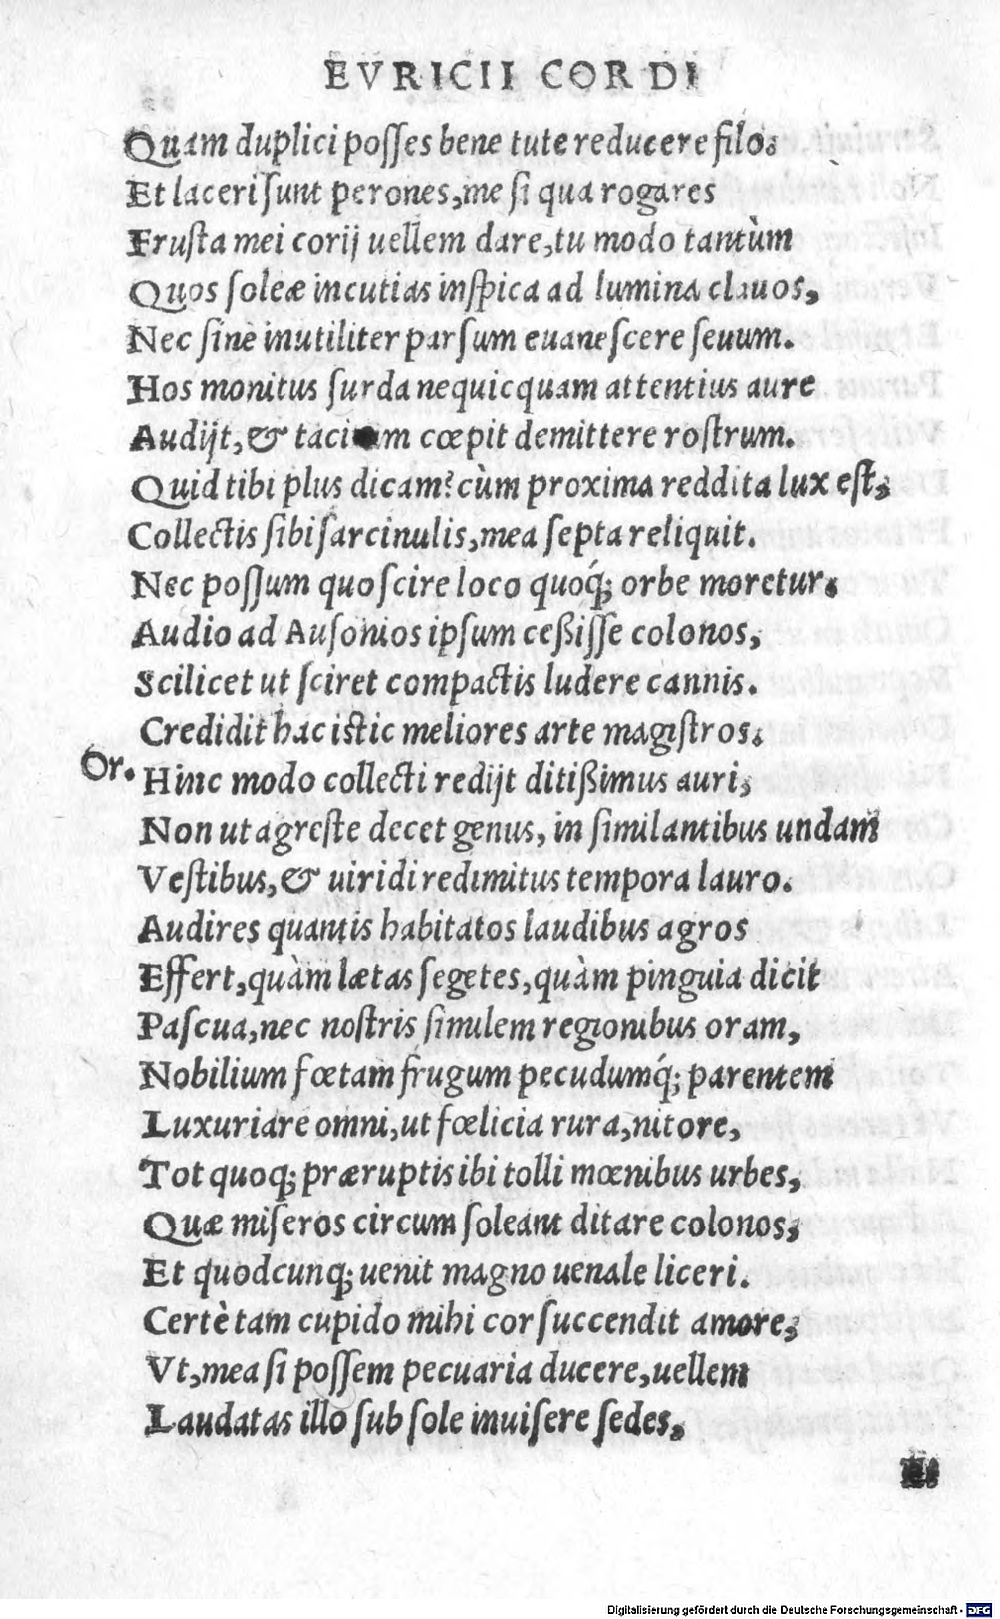 EVRICII CORDI
Quam duplici posses bene tute reducere filo.
Et laceri sunt perones, me si qua rogares
Frusta mei corij uellem dare, tu modo tantùm
Quos soleæ incutias inspica ad lumina clauos,
Nec sine inutiliter parsum euanescere seuum.
Hos monitus surda nequicquam attentius aure
Audijt, & tacitum cœpit demittere rostrum.
Quid tibi plus dicam? cùm proxima reddita lux est,
Collectis sibi sarcinulis, mea septa reliquit.
Nec possum quo scire loco quoq́; orbe moretur.
Audio ad Ausonios ipsum ceßisse colonos,
Scilicet ut sciret compactis ludere cannis.
Credidit hac istic meliores arte magistros.
Or. Hinc modo collecti redijt ditißimus auri,
Non ut agreste decet genus, in similantibus undam
Vestibus, & uiridi redimitus tempora lauro.
Audires quantis habitatos laudibus agros
Effert, quàm lætas segetes, quàm pinguia dicit
Pascua, nec nostris similem regionibus oram,
Nobilium fœtam frugum pecudumq́; parentem
Luxuriare omni, ut fœlicia rura, nitore,
Tot quoq; præruptis ibi tolli mœnibus urbes,
Quæ miseros circum soleant ditare colonos,
Et quodcunq; uenit magno uenale liceri.
Certè tam cupido mihi cor succendit amore,
Vt, mea si possem pecuaria ducere, uellem
Laudatas illo sub sole inuisere sedes,
Digitalisierung gefördert durch die Deutsche Forschungsgemeinschaft - DFG